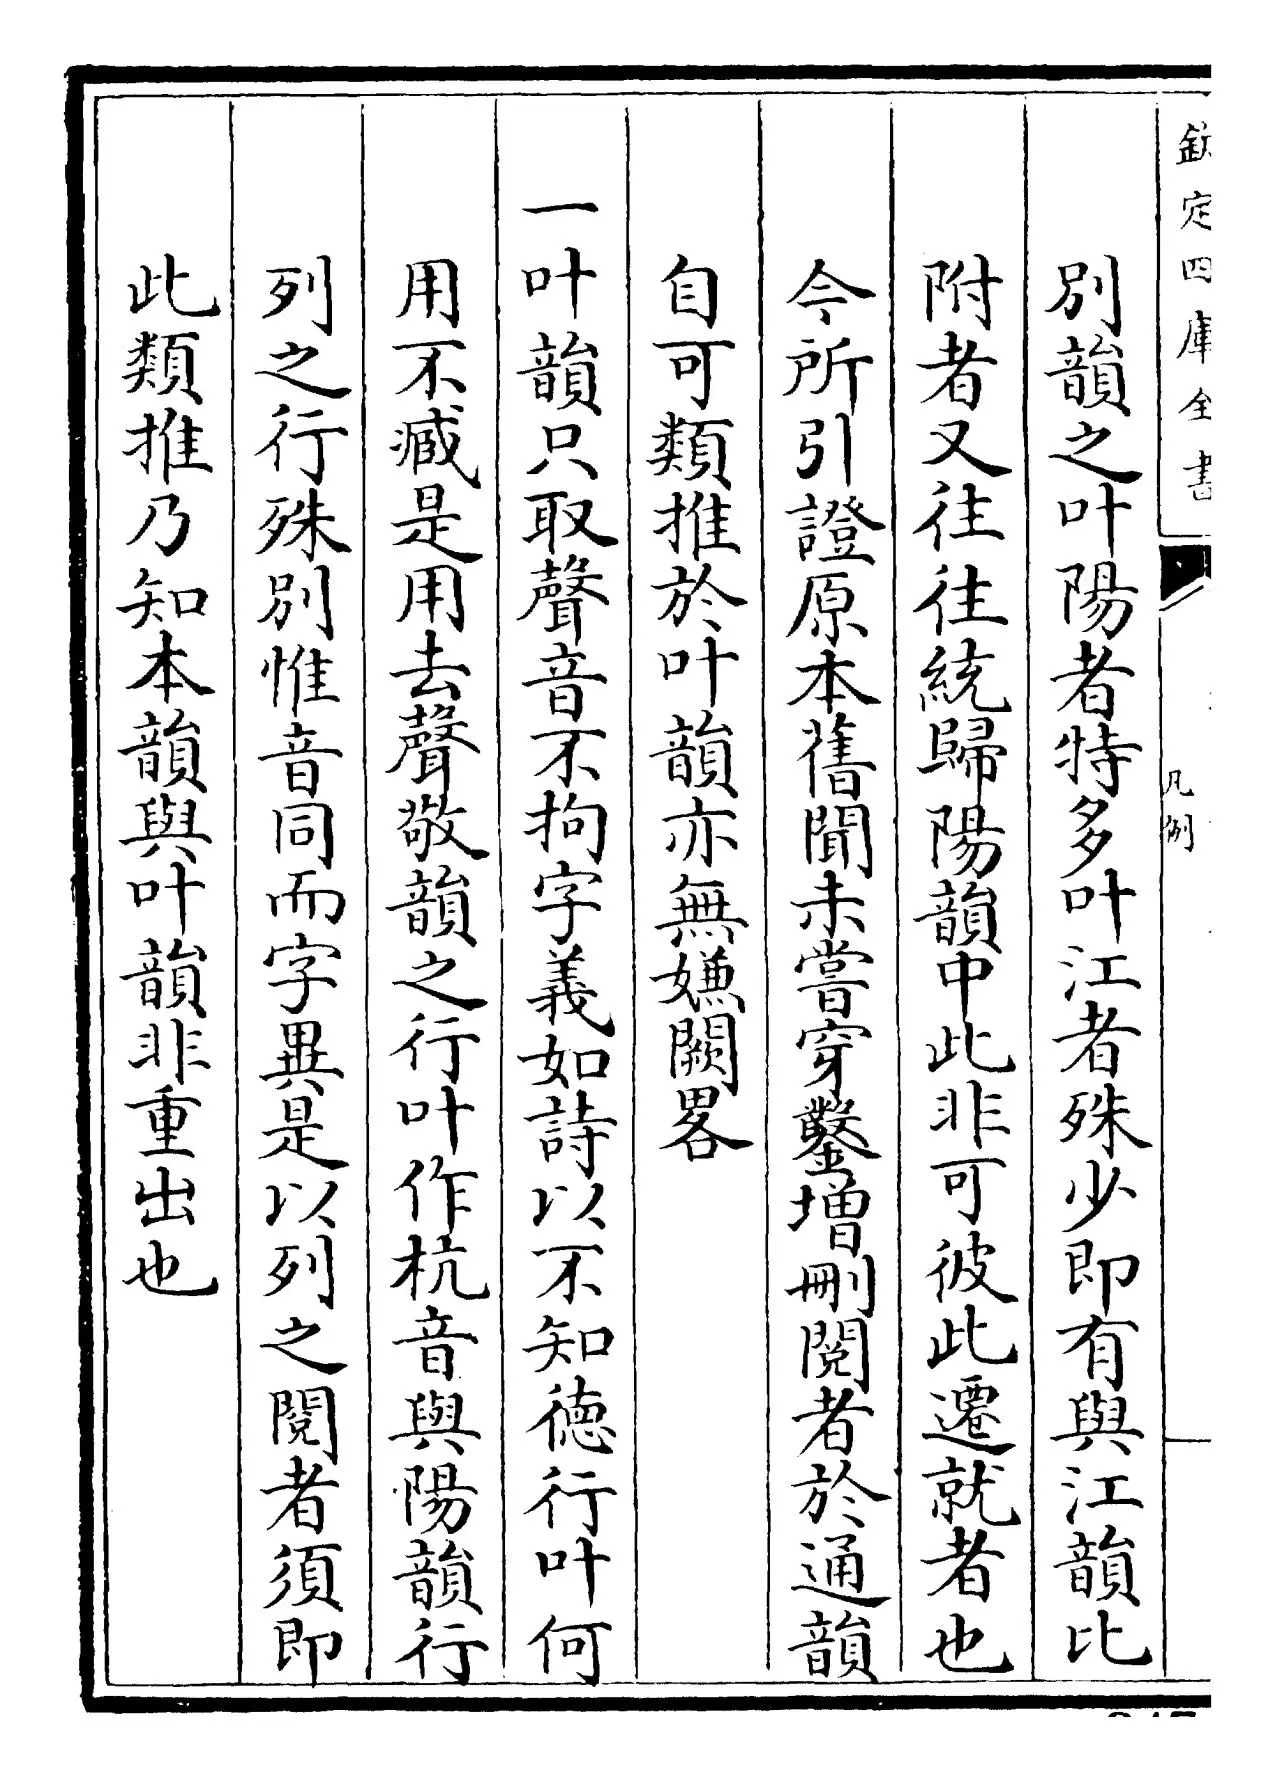 欽定四庫全書
凡例
別韻之叶陽者特多叶江者殊少即有與江韻比
附者又往往統歸陽韻中此非可彼此遷就者也
今所引證原本舊聞未嘗穿鑿增刪閱者於通韻
自可類推於叶韻亦無嫌闕畧
一叶韻只取聲音不拘字義如詩以不知德行叶何
用不臧是用去聲敬韻之行叶作杭音與陽韻行
列之行殊別惟音同而字異是以列之閱者須即
此類推乃知本韻與叶韻非重出也